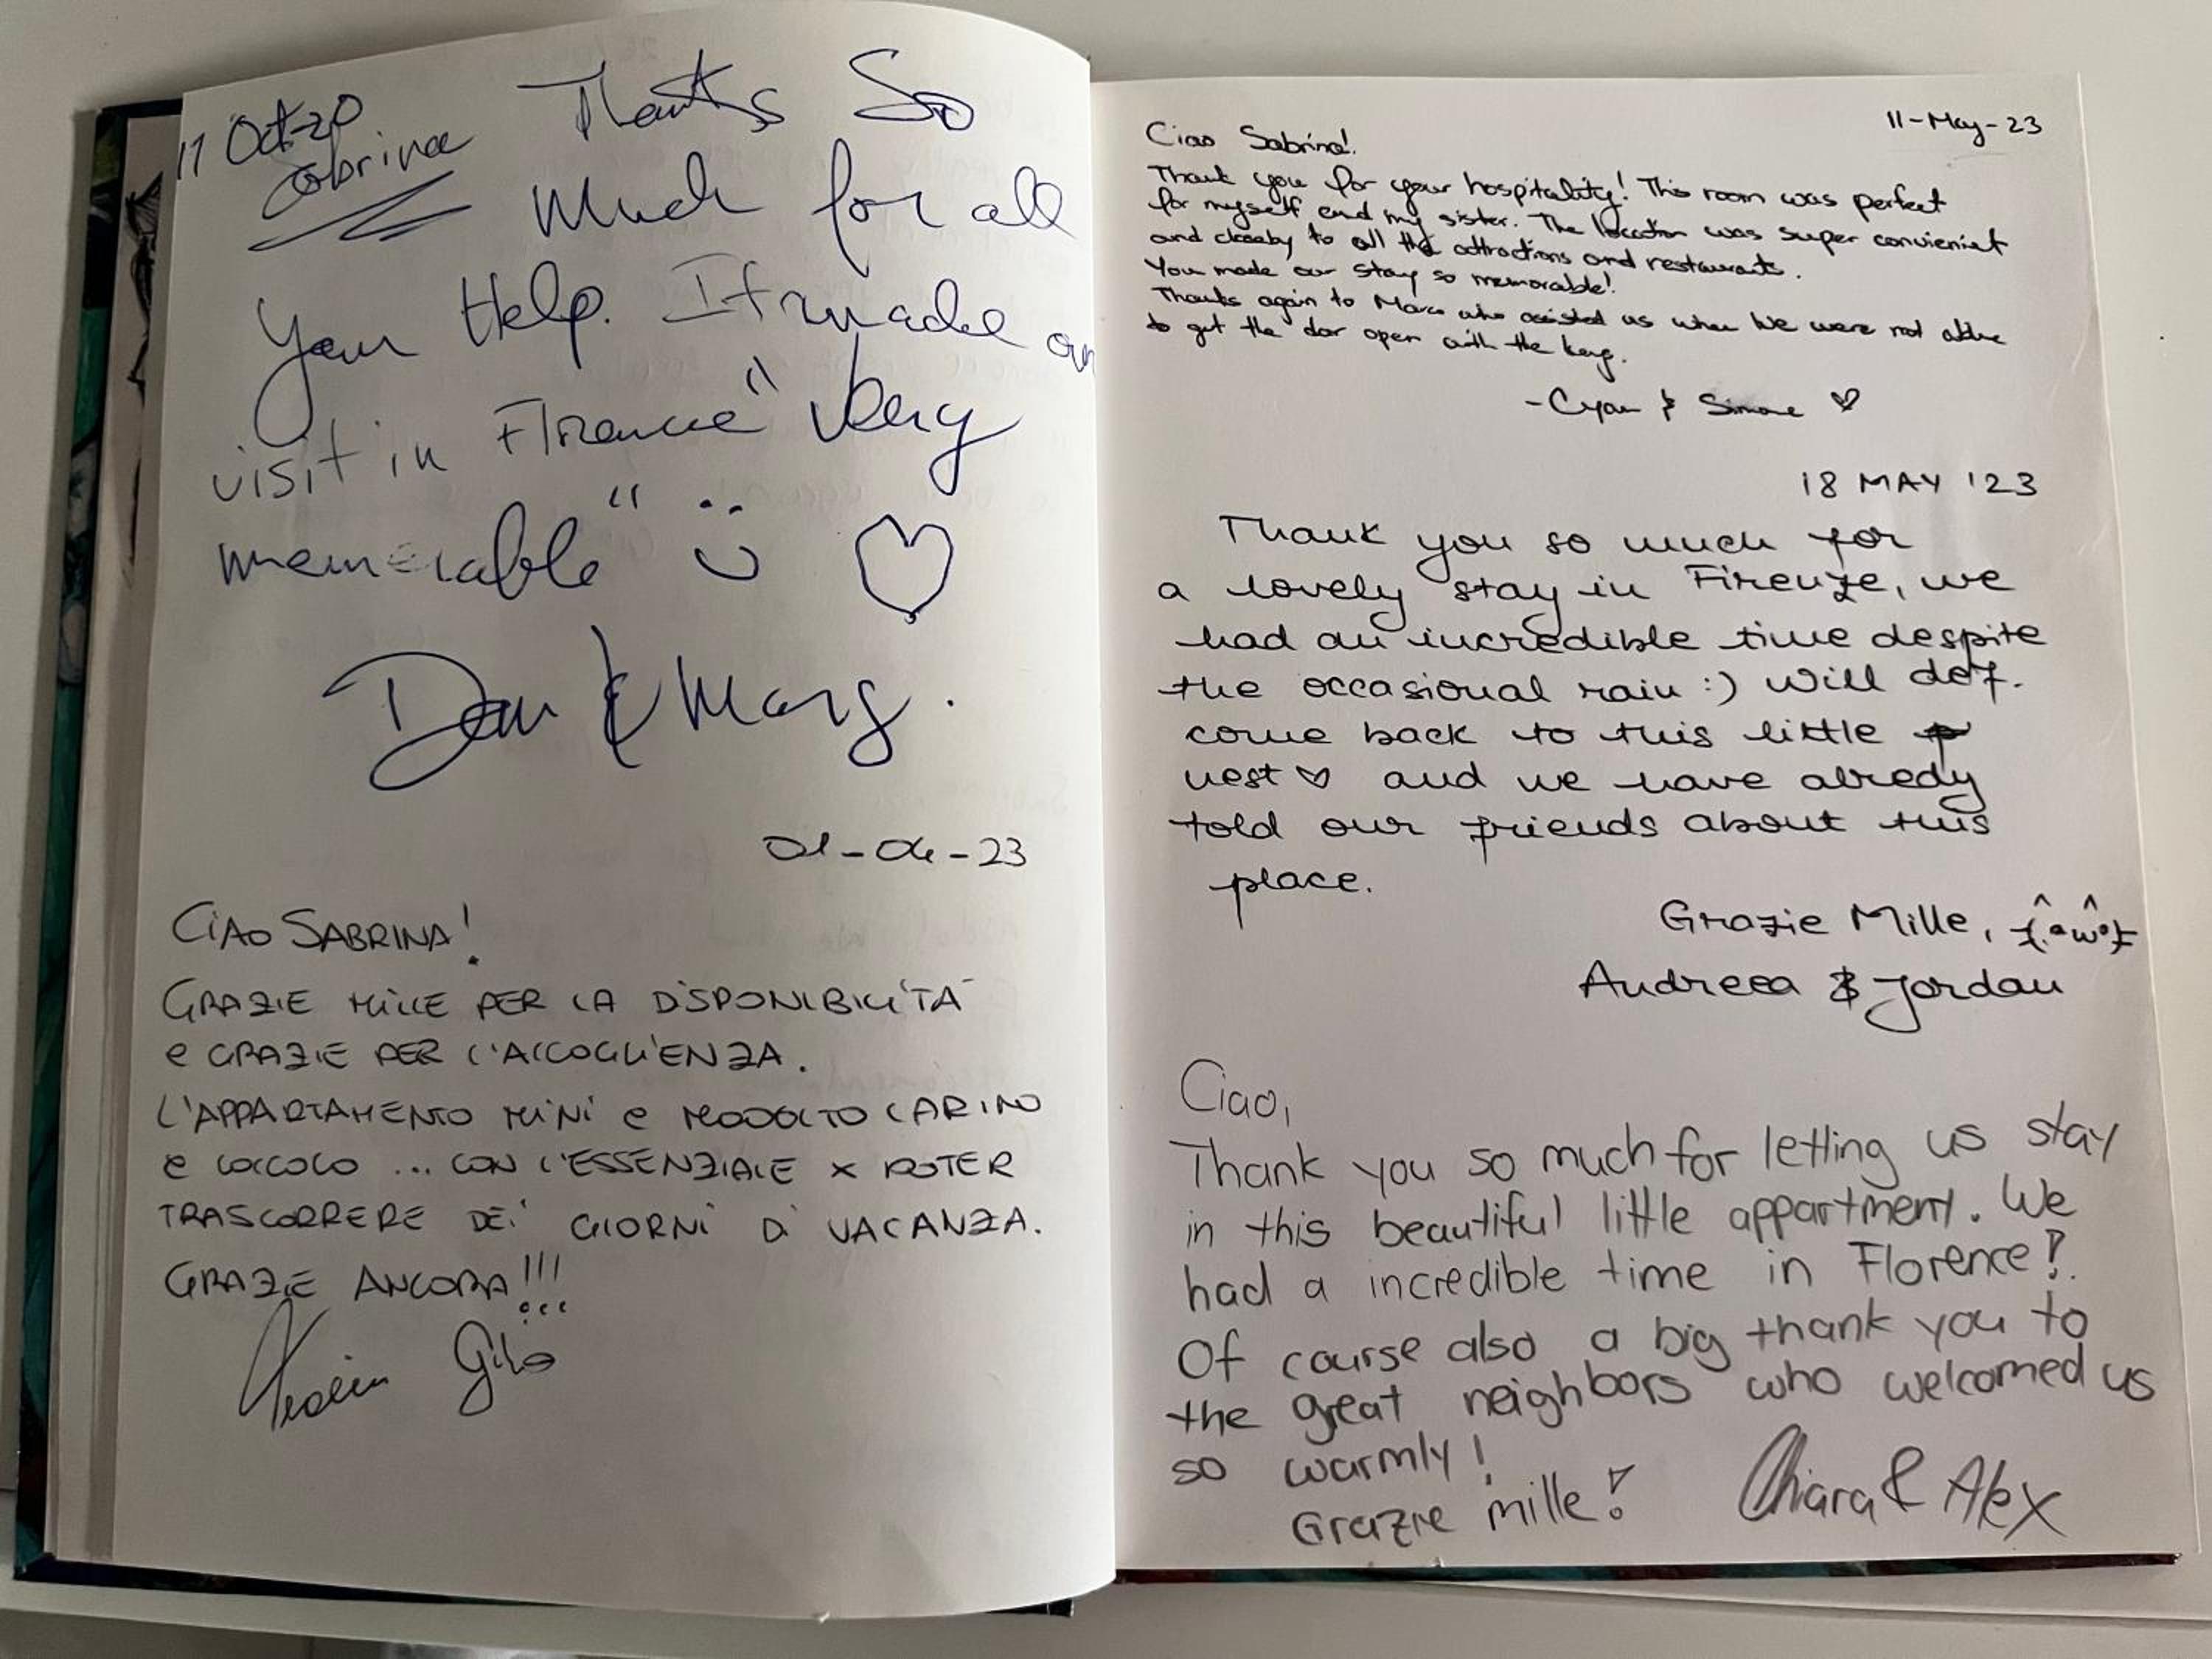 11 Oct-20
Sabrina Thanks So
Much for all
Your Help. It made our
visit in Florence " Very
memorable " :)
Dan & Marg.
01-04-23
CIAO SABRINA!
GRAZIE MILLE PER LA DISPONIBILITÀ
e GRAZIE PER L'ACCOGLIENZA.
L'APPARTAMENTO MINI e MODOLTO CARINO
e COCCOLO ... CON L'ESSENZIALE X POTER
TRASCORRERE DEI GIORNI DI VACANZA.
GRAZIE ANCORA!!!
11-May-23
Ciao Sabrina!
Thank you for your hospitality! This room was perfect
for myself and my sister. The location was super convienient
and closeby to all the attractions and restaurants.
You made our stay so memorable!
Thanks again to Marco who assisted us when we were not able
to get the door open with the key.
- Cyan & Simone ♡
18 MAY '23
Thank you so much for
a lovely stay in Firenze, we
had an incredible time despite
the occasional rain :) Will def.
come back to this little
nest ♡ and we have alredy
told our friends about this
place.
Grazie Mille,
Andreea & Jordan
Ciao,
Thank you so much for letting us stay
in this beautiful little appartment. We
had a incredible time in Florence!
Of course also a big thank you to
the great neighbors who welcomed us
so warmly!
Grazie mille! Chiara & Alex